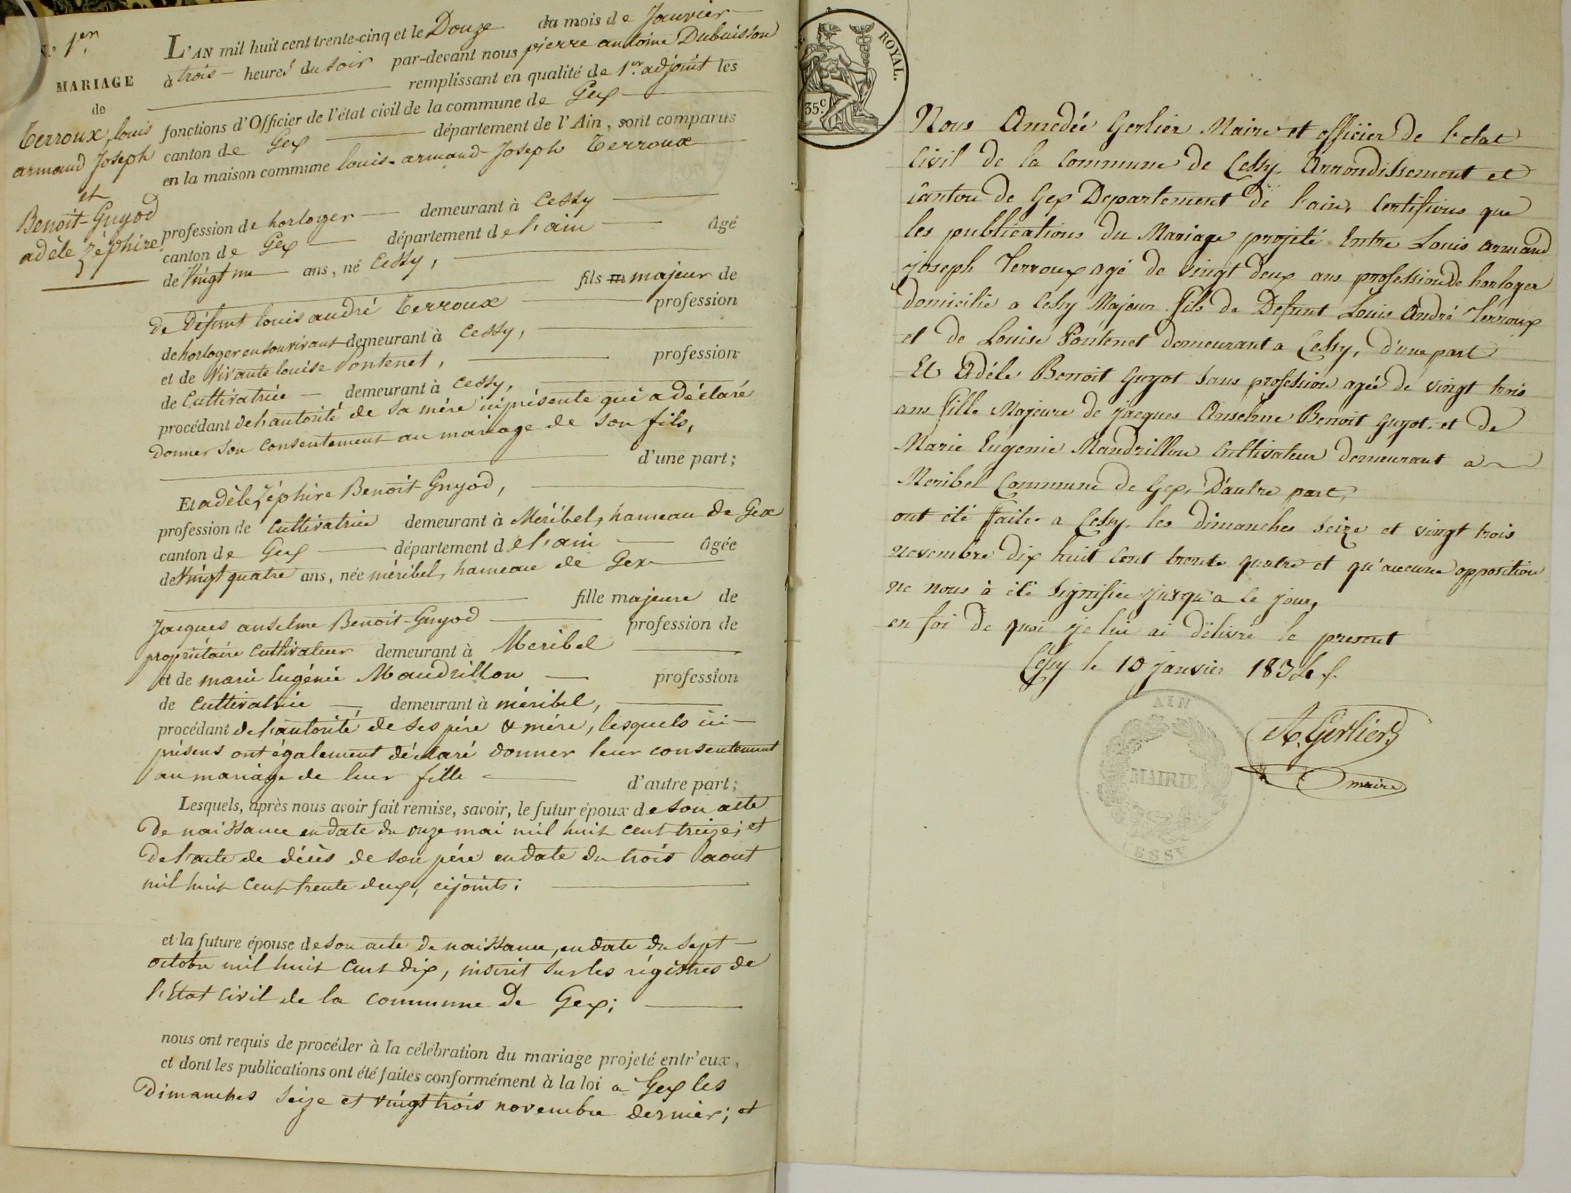 N.º 1.er
MARIAGE
de
Terroux, louis
armand Joseph
et
Benoit-Guyod
adèle Zéphire.
L'AN mil huit cent trente-cinq et le Douze du mois de Janvier
à trois heures du soir par-devant nous pierre antoine Dubuisson
remplissant en qualité de 1.er adjoint les
fonctions d'Officier de l'état civil de la commune de Gex
canton de Gex département de l'Ain, sont comparus
en la maison commune louis-armand-Joseph Terroux
profession de horloger demeurant à Cessy
canton de Gex département de l'ain âgé
de Vingt un ans, né Cessy,
fils majeur de
de Défunt louis andré Terroux profession
de horloger en son vivant demeurant à Cessy,
et de Vivante louise Pontenet, profession
de Cultivatrice demeurant à Cessy,
procédant de l'autorité de sa mère ici présente qui a déclaré
donner son consentement au mariage de son fils,
d'une part;
Et adèle Zéphire Benoit Guyod,
profession de Cultivatrice demeurant à Méribel, hameau de Gex
canton de Gex département de l'ain âgée
de Vingt quatre ans, née méribel, hameau de Gex
fille majeure de
Jacques anselme Benoit-Guyod profession de
propriétaire Cultivateur demeurant à Meribel
et de marie Eugénie Mandrillon profession
de Cultivatrice demeurant à méribel,
procédant de l'autorité de ses père & mère, lesquels ici
présens ont également déclaré donner leur consentement
au mariage de leur fille d'autre part;
Lesquels, après nous avoir fait remise, savoir, le futur époux de son acte
De naissance en date du onze mai mil huit cent treize; et
De l'acte de décès de son père en date du trois aout
mil huit cent trente deux, cijoints;
et la future épouse de son acte de naissance, en date du Sept
octobre mil huit cent dix, inscrit sur les régistres de
l'Etat Civil de la commune de Gex;
nous ont requis de procéder à la célébration du mariage projeté entr'eux,
et dont les publications ont été faites conformément à la loi a Gex les
Dimanches Seize et vingt trois novembre dernier; et
ROYAL.
35 c.
Nous Amédée Gerlier Maire et officier de l'etat
Civil de la Commune de Cessy. Arrondissement et
Canton de Gex Departement de l'ain, Certifions que
les publications du Mariage projeté Entre Louis armand
Joseph Terroux agé de vingt deux ans profession de horloger
domicilié a Cessy Majeur fils de Defunt Louis André Terroux
et de Louise Pontenet demeurant a Cessy, d'une part
Et Adéle Benoit Guyot sans profession agée de vingt trois
ans fille Majeure de Jacques Anselme Benoit Guyot. et de
Marie Eugenie Mandrillon Cultivateur demeurant a
Meribel Commune de Gex, D'autre part,
ont été faites a Cessy. les dimanches seize et vingt trois
novembre dix huit cent trente quatre et qu'aucune opposition
ne nous à été signifiée jusqu'a ce jour,
en foi de quoi je lui ai délivré le present
Cessy le 10 janvier 183
A. Gerlier
maire
AIN
MAIRIE
CESSY